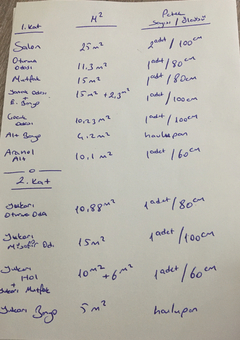 1. Kat M² Petek Sayısı / Ölçüsü
Salon 25 m² 2 adet / 100 cm
Oturma Odası 11.3 m² 1 adet / 80 cm
Mutfak 15 m² 1 adet / 80 cm
15 m² + 2,3 m² 1 adet / 100 cm
E. Banyo
Çocuk Odası 10.23 m² 1 adet / 100 cm
Alt Banyo 4.2 m² havlupan
Alt 10,1 m² 1 adet / 60 cm
2. Kat
Yukarı Oturma Oda 10,88 m² 1 adet / 80 cm
Yukarı Misafir Od. 15 m² 1 adet / 100 cm
Yukarı Hol + Yukarı Mutfak 10 m² + 6 m² 1 adet / 60 cm
Yukarı Banyo 5 m² havlupan